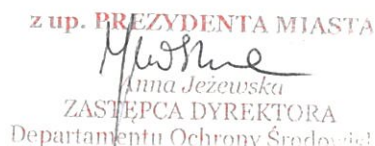 z up. PREZYDENTA MIASTA
Anna Jeżewska
ZASTĘPCA DYREKTORA
Departamentu Ochrony